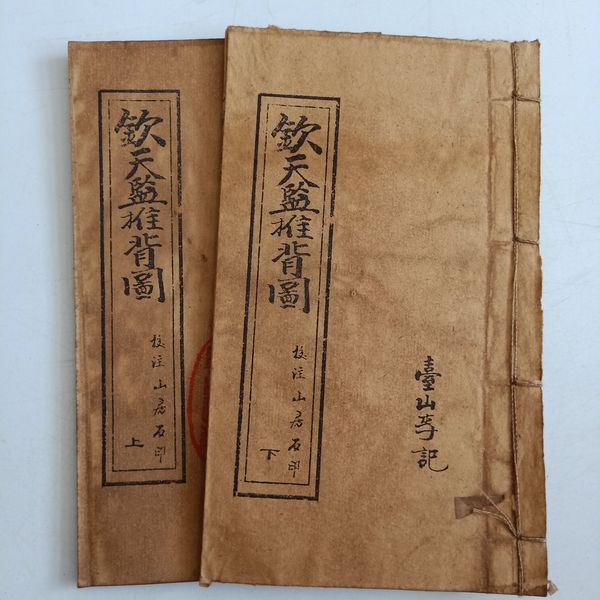 欽天監推背圖
校注山房石印
上
欽天監推背圖
校注山房石印
下
臺山李記